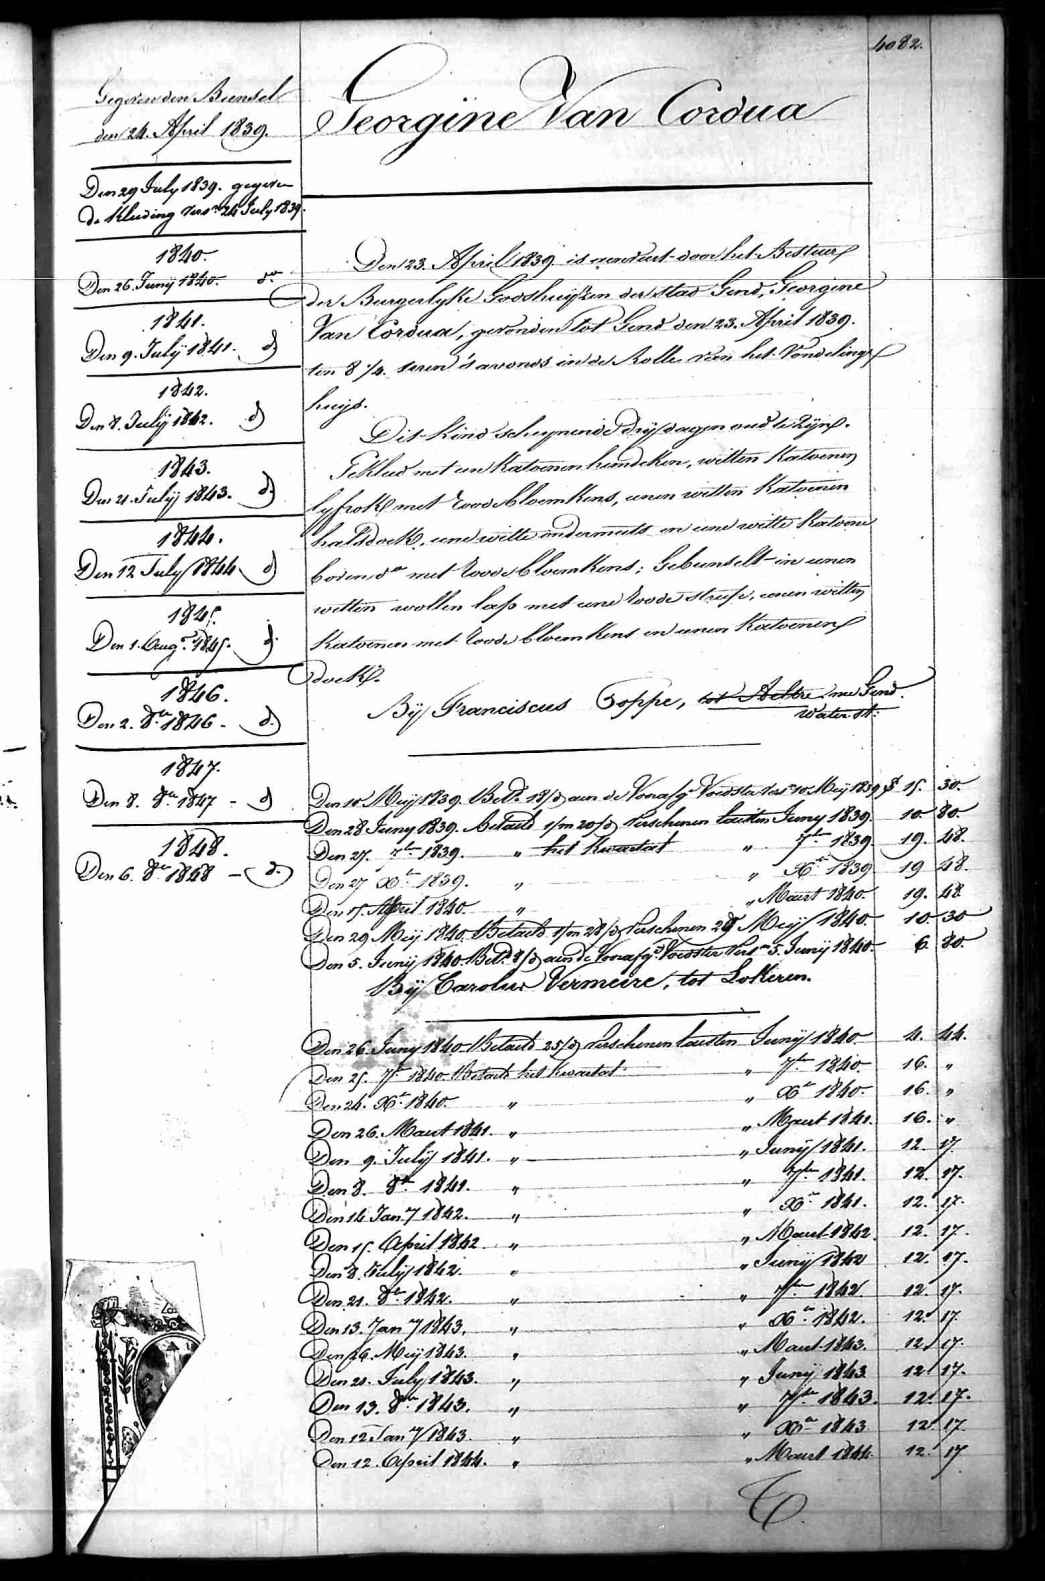 4082.
Gegeven den Bunsel
den 24. April 1839.
Den 29 July 1839. gegeven
de Kleeding versn 24 July 1839.
1840.
Den 26. Junij 1840. do
1841.
Den 9. Julij 1841. do
1842.
Den 8. Julij 1842. do
1843.
Den 21. Julij 1843. do
1844.
Den 12 July 1844 do
1845.
Den 1. Augt 1845. do
1846.
Den 2. 8br 1846 - do
1847.
Den 8. 8br 1847 - do
1848.
Den 6. 8br 1848 - do
Georgine Van Cordua
Den 23. April 1839 is aenveert door het Bestuur
der Burgerlyke Godshuijzen der stad Gend, Georgine
Van Cordua, gevonden tot Gend den 23. April 1839.
ten 8 1/4 uren 's avonds in de Rolle van het Vondelings
huys.
Dit kind schynende dry dagen oud te zyn.
Gekleed met een Katoenen hemdeken, witten Katoenen
lyfrok met roode bloemkens, eenen witten Katoenen
halsdoek, eene witte ondermuts en eene witte Katoene
boven do met roode bloemkens; Gebunselt in eenen
witten wollen lap met eene roode streep, eenen witten
Katoenen met roode bloemkens en eenen Katoenen
doek.
Bÿ Franciscus Coppe, tot Aeltre. nu Gend.
Waterst:
Den 10 Meij 1839. Betd 18/d aen de Voorafge Voedster versn 10 Meij 1839 f 15. 30.
Den 28 Juny 1839. Betaeld 1/m 20/d verschenen lauten Juny 1839. 10. 80.
Den 27. 7br 1839. " het Kwartaal " 7br 1839 19. 48.
Den 27 Xbr 1839. " " Xbr 1839 19 48.
Den 15. April 1840. " " Maart 1840. 19. 48
Den 29 Meij 1840. Betaeld 1/m 28/d verschenen 28 Meij 1840. 10 30
Den 5. Junij 1840 Betd 8/d aen de Voorafgd Voedster versn 5. Junij 1840. 6. 80.
Bÿ Carolus Vermeire, tot Lokeren.
Den 26. Juny 1840 Betaeld 25/d verschenen lauten Junij 1840. 4. 44.
Den 25. 7br 1840. Betaeld het Kwartaal " 7br 1840. 16. "
Den 24. Xbr 1840. " " Xbr 1840. 16. "
Den 26. Maart 1841. " " Maart 1841. 16. "
Den 9. Julij 1841. " " Junij 1841. 12. 17.
Den 8. 8br 1841. " " 7br 1841. 12. 17.
Den 14 Jany 1842. " " Xbr 1841. 12. 17.
Den 15. April 1842. " " Maart 1842. 12. 17.
Den 8. Julij 1842. " " Junij 1842 12. 17.
Den 21. 8br 1842. " " 7br 1842 12. 17.
Den 13. Jany 1843. " " Xbr 1842. 12. 17
Den 26. Meij 1843. " " Maart 1843. 12. 17.
Den 21. July 1843. " " Junij 1843. 12. 17.
Den 13. 8br 1843. " " 7br 1843. 12. 17.
Den 12 Jany 1843 " " Xbr 1843 12. 17
Den 12. April 1844. " " Maart 1844. 12. 17